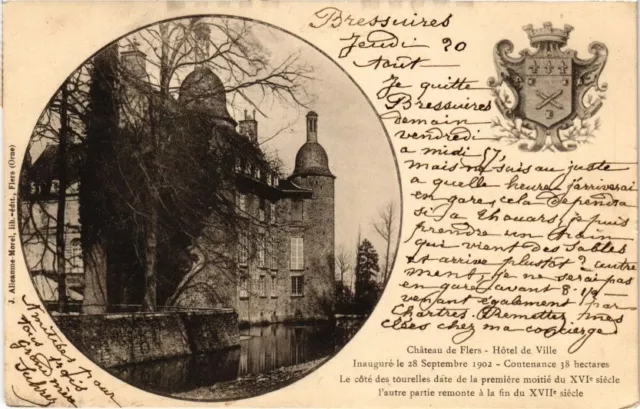 Bressuires
Jeudi 20
Aout
Je quitte
Bressuires
demain
vendredi
a midi 57
mais ne suis au juste
a quelle heure j'arriverai
en gare cela dependra
si a Thouars je puis
prendre un train
qui vient des Sables
et arrive plustot? autre
ment, je ne serai pas
en gare avant 8-14
venant également par
Chartres. Remettez mes
clées chez ma concierge
Amitiées pour
vous trois
Grand'mère
J. Alleaume-Morel, lib.-édit., Flers (Orne)
Château de Flers - Hôtel de Ville
Inauguré le 28 Septembre 1902 - Contenance 38 hectares
Le côté des tourelles date de la première moitié du XVIe siècle
l'autre partie remonte à la fin du XVIIe siècle